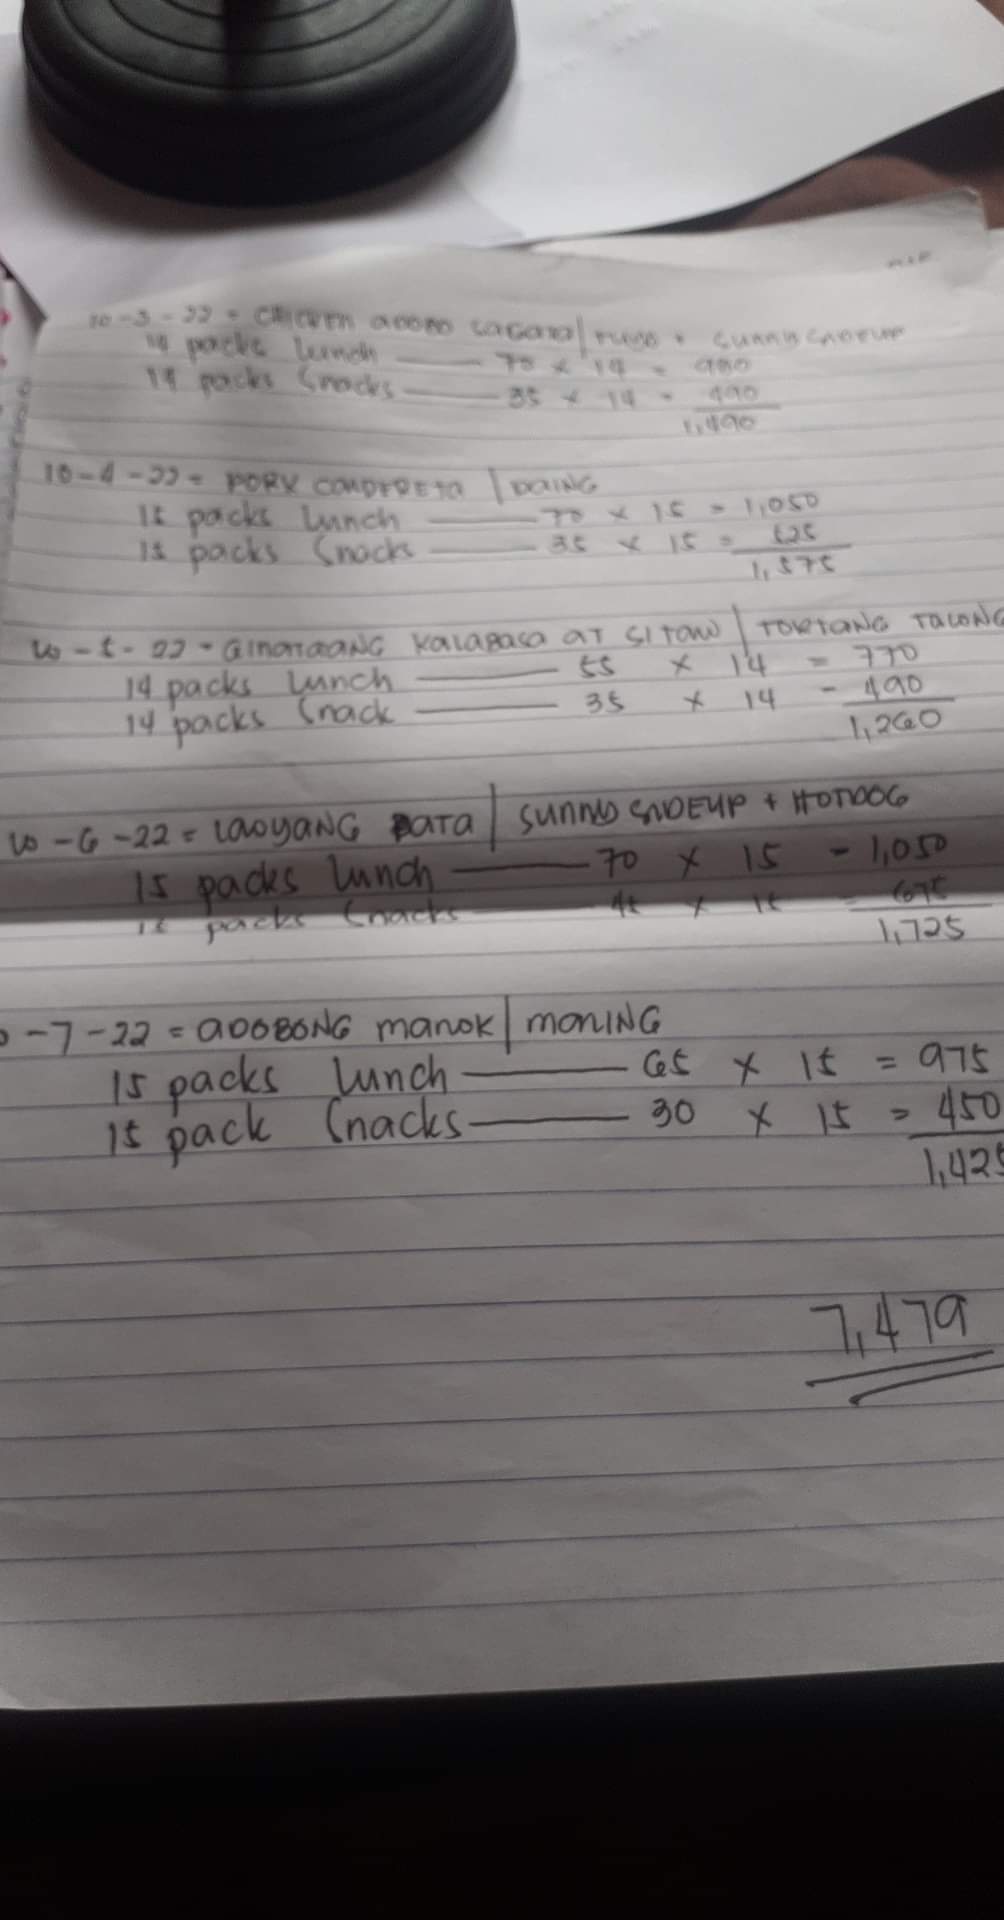 10-3-22 = CHICKEN ADOBO + SUNNYSIDEUP
14 packs lunch 70 x 14 = 980
14 packs Snacks 35 x 14 = 490
1,490
10-4-22 = PORK / DAING
15 packs lunch 70 x 15 = 1,050
15 packs Snacks 35 x 15 = 525
1,575
10-5-22 = GINATAANG KALABASA AT SITAW / TORTANG TALONG
14 packs lunch 55 x 14 = 770
14 packs Snack 35 x 14 = 490
1,260
10-6-22 = LAOYANG PATA / SUNNYSIDEUP + HOTDOG
15 packs lunch 70 x 15 = 1,050
15 packs Snacks 45 x 15 = 675
1,725
-7-22 = ADOBONG MANOK / MONING
15 packs lunch 65 x 15 = 975
15 pack Snacks 30 x 15 = 450
1,425
7,479